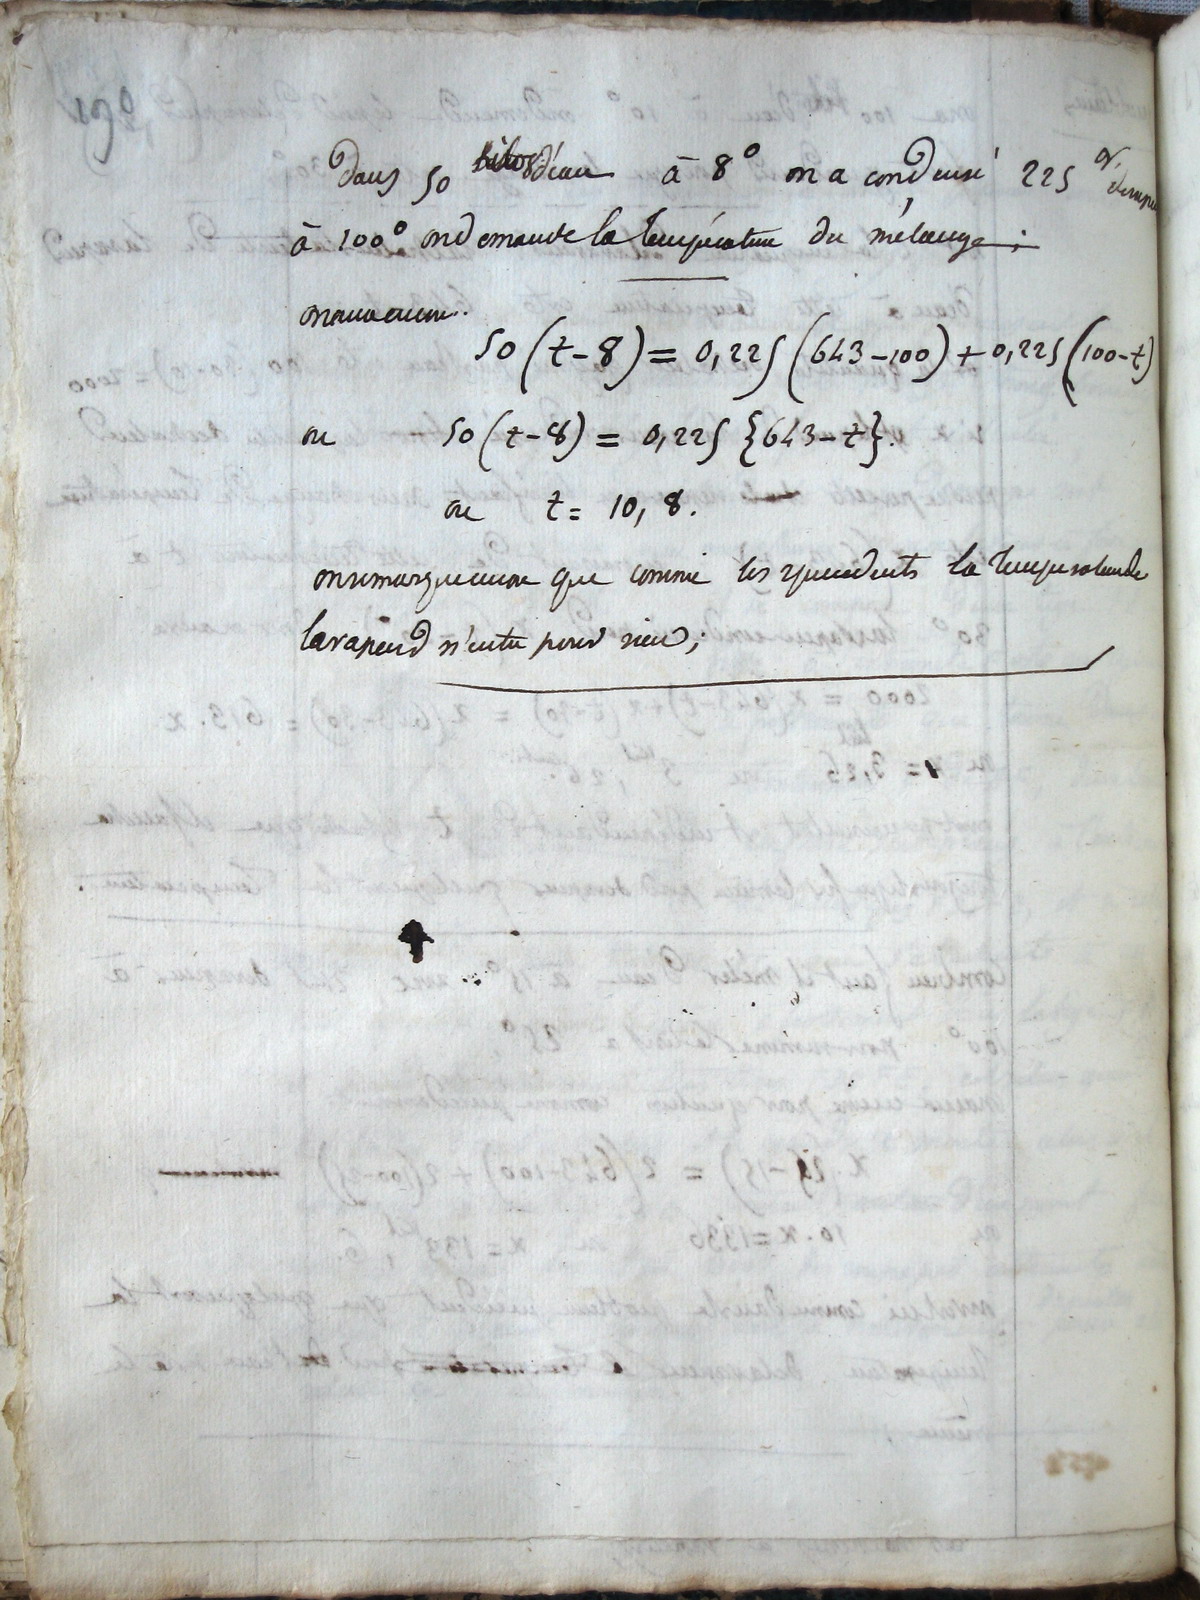 Dans 50 kilos d'eau à 8° on a condensé 225 gr.
à 100° on demande la température du mélange ;
on aura encore.
50 (t-8) = 0,225 (643-100) + 0,225 (100-t)
ou 50 (t-8) = 0,225 {643-t}.
ou t = 10,8.
on remarque encore que comme les précédents la température de
la vapeur n'entre pour rien ;